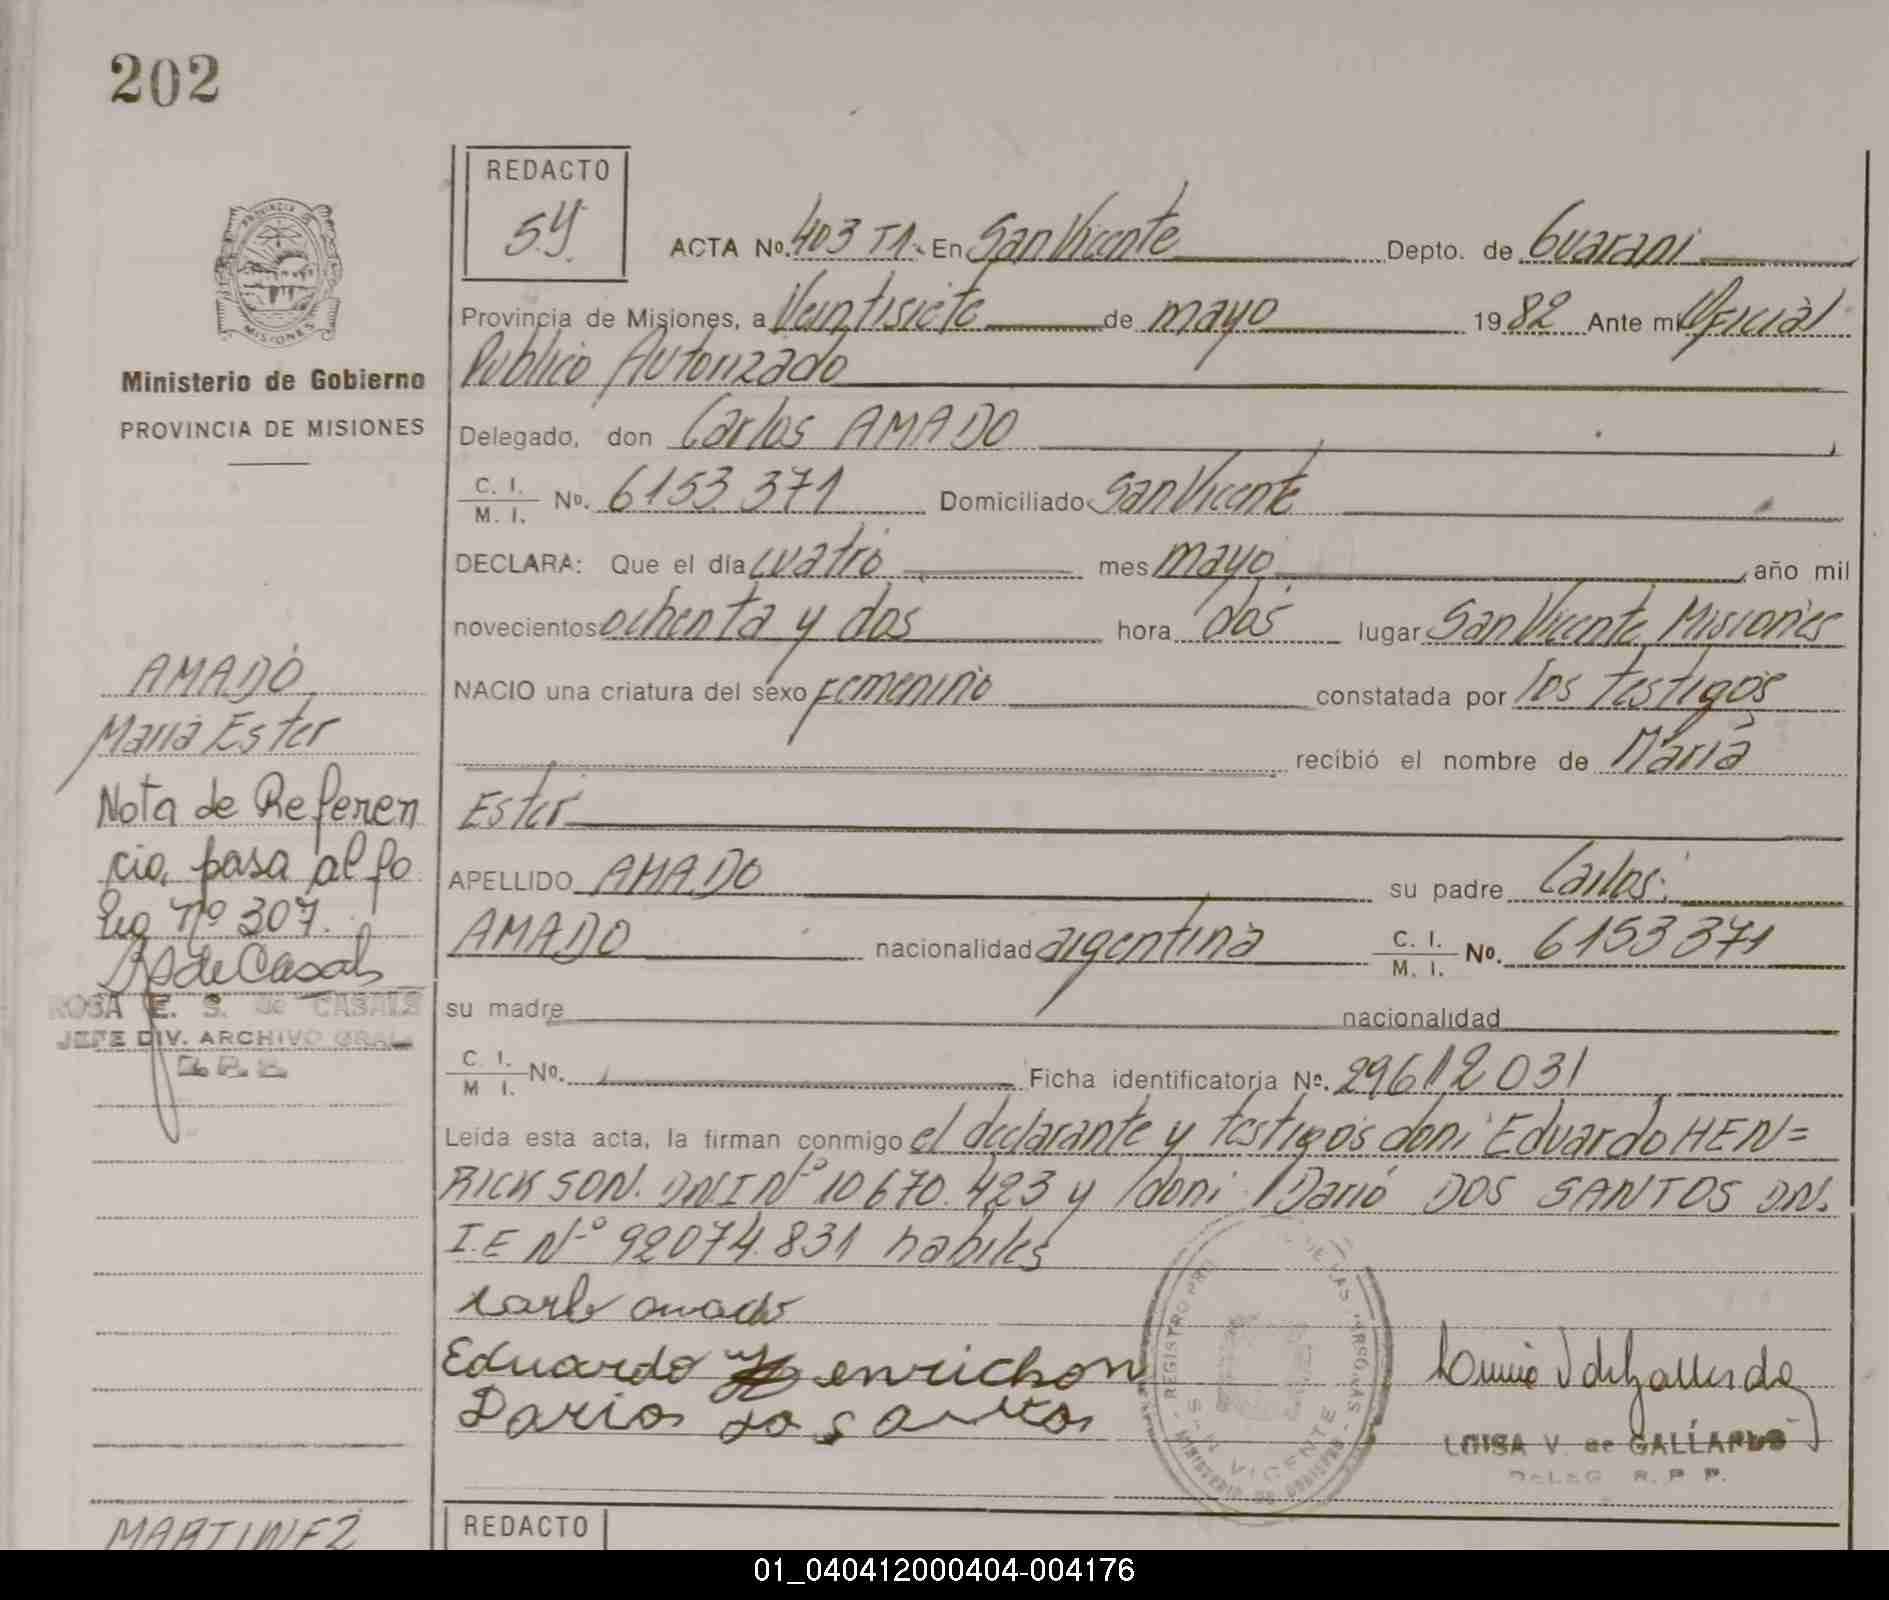 202
REDACTO
S.Y.
ACTA No. 403 T1. En San Vicente Depto. de Guarani
Provincia de Misiones, a Veintisiete de mayo 1982 Ante mi Oficial
Publico Autorizado
Ministerio de Gobierno
PROVINCIA DE MISIONES
Delegado, don Carlos AMADO
C. I.
M. I. No. 6153.371 Domiciliado San Vicente
DECLARA: Que el día cuatro mes mayo, año mil
novecientos ochenta y dos hora dos lugar San Vicente Misiones
NACIO una criatura del sexo femenino constatada por los testigos
recibió el nombre de María
Ester
APELLIDO AMADO su padre Carlos
AMADO nacionalidad argentina C. I.
M. I. No. 6153371
su madre nacionalidad
C. I.
M I. No. Ficha identificatoria No. 29612031
Leída esta acta, la firman conmigo el declarante y testigos don: Eduardo HEN=
RICKSON. DNI Nº 10670.423 y don: Dario DOS SANTOS DN.
I.E Nº 92074.831 habiles
Carlo amado
Eduardo Henrichon
Darios dos santos
LUISA V. de GALLARDO
DELEG. R. P. P.
REGISTRO PRO DE LAS PERSONAS
SAN VICENTE
MINISTERIO DE GOBIERNO
AMADO
María Ester
Nota de Referen
cia, pasa al fo
leg Nº 307.
RS de Casals
ROSA E. S. de CASALS
JEFE DIV. ARCHIVO GRAL.
MARTINEZ
REDACTO
01_040412000404-004176